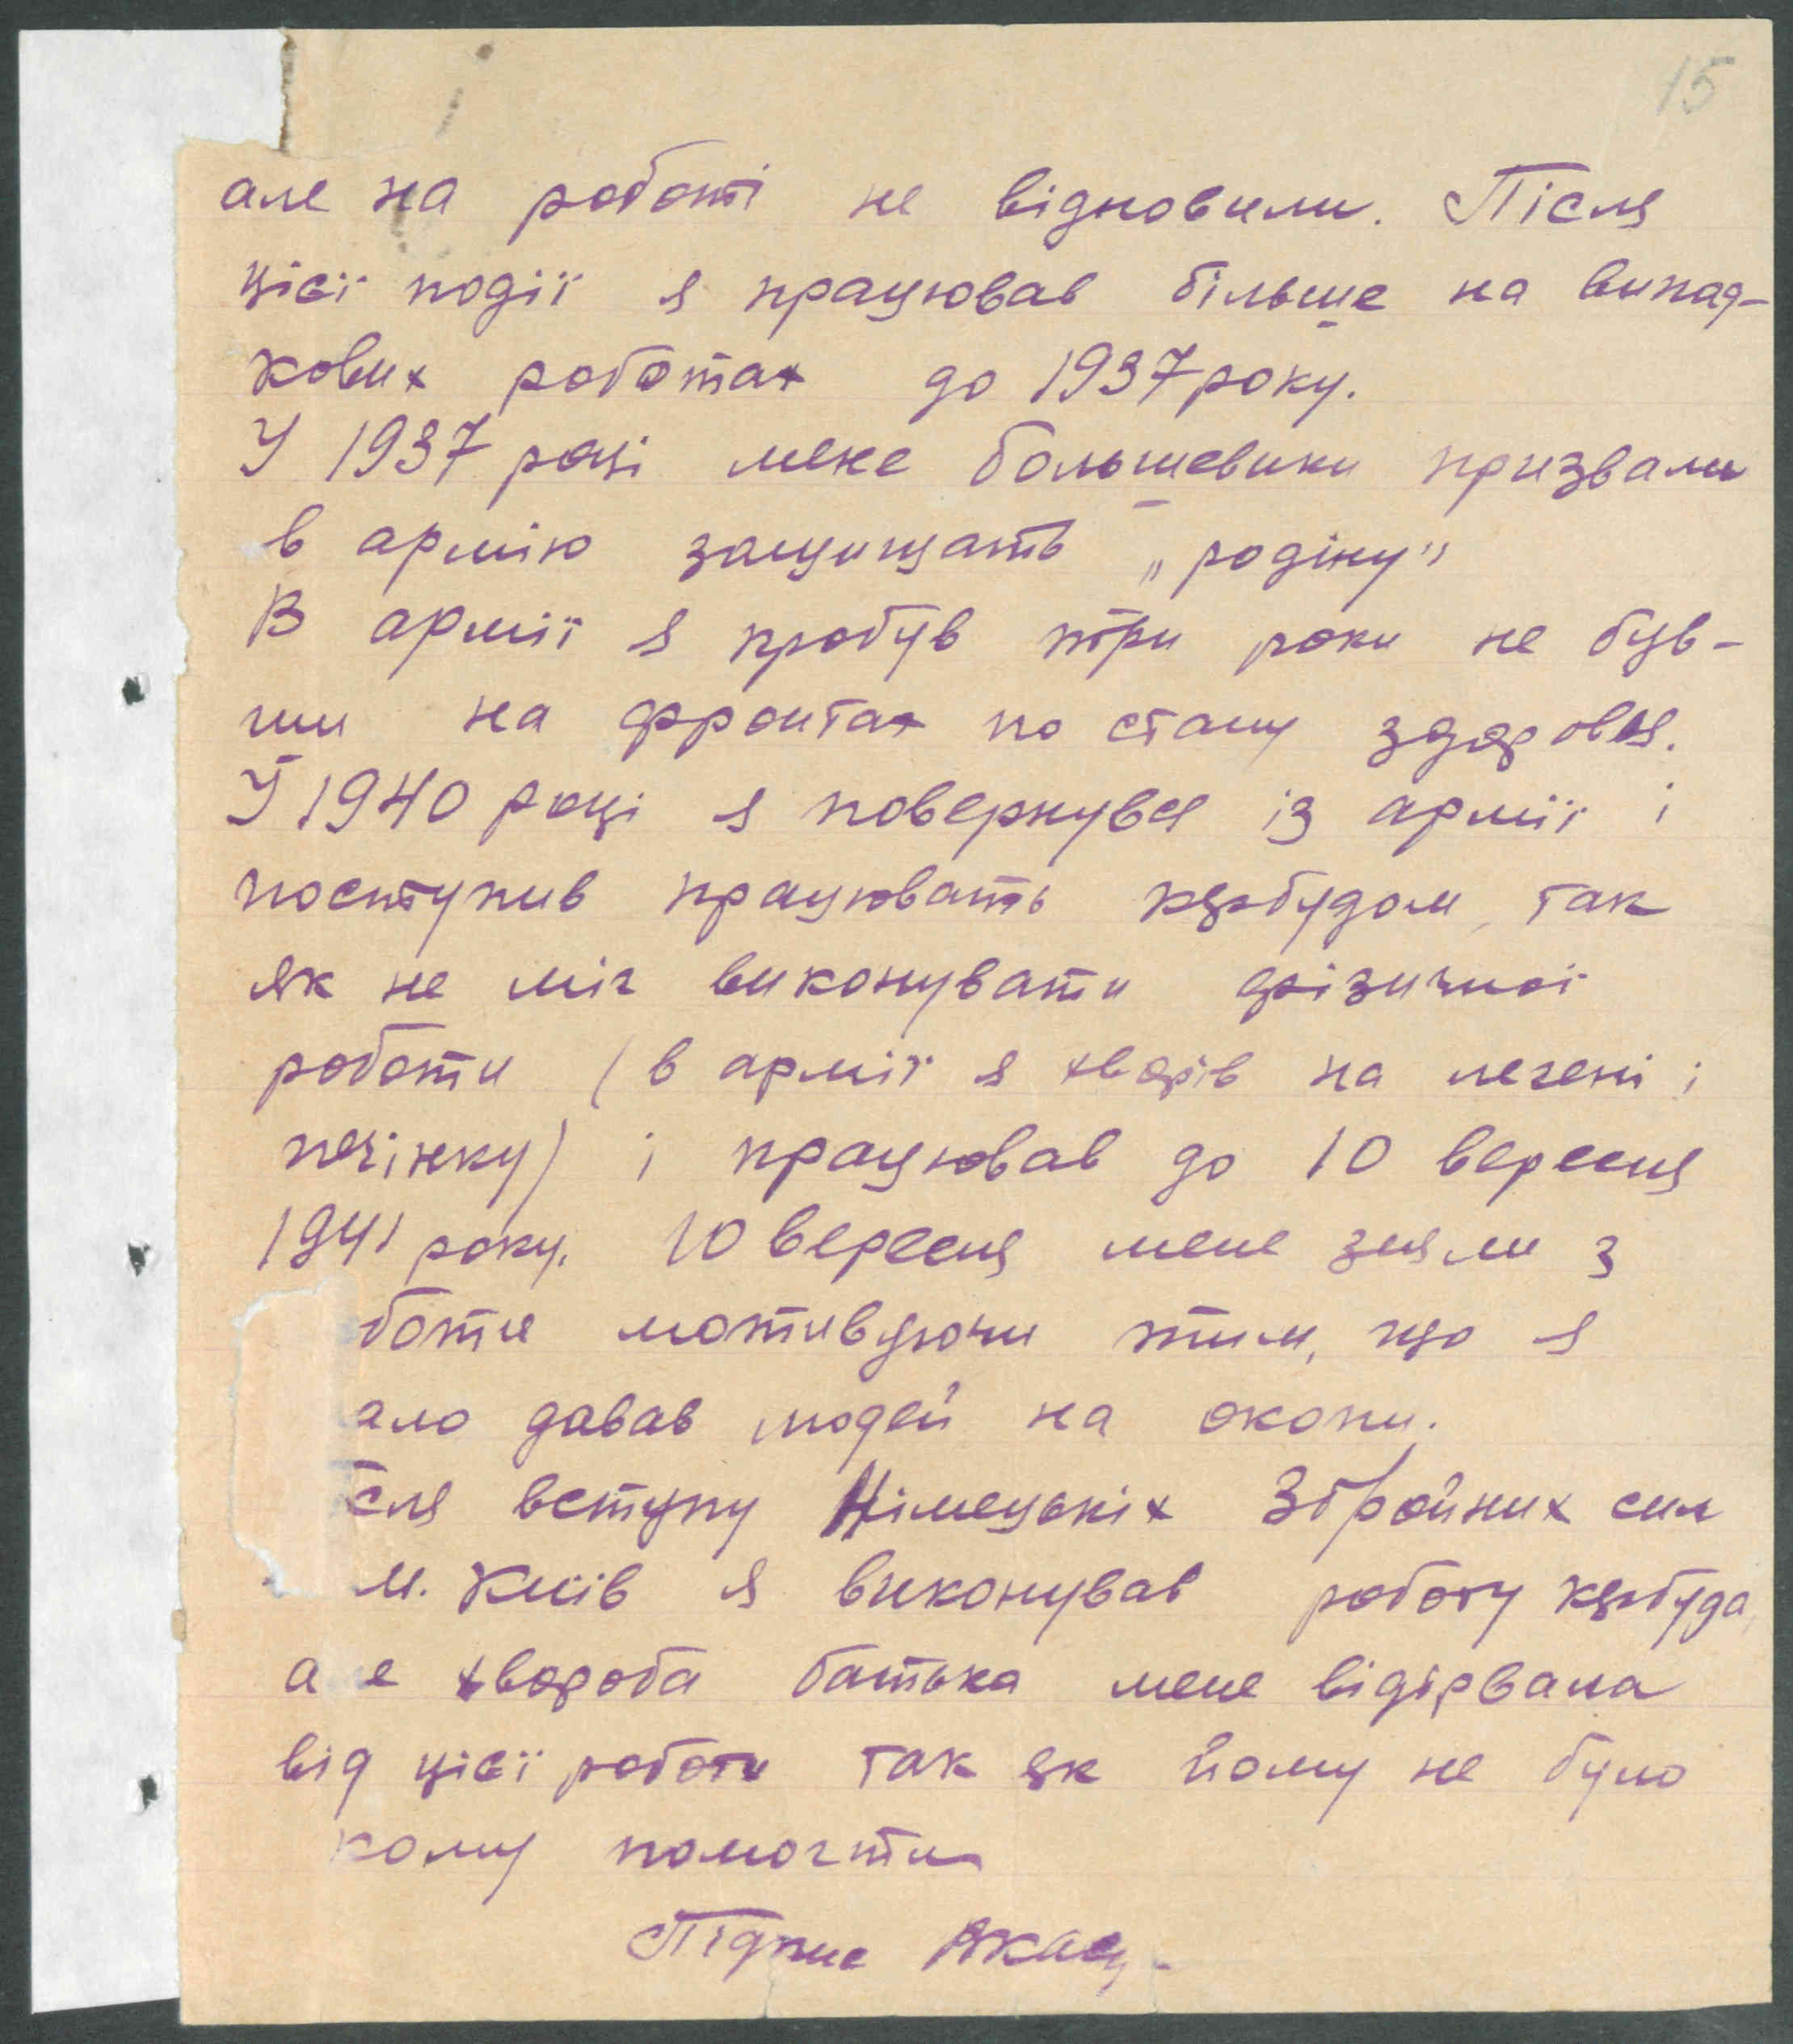 15
але на роботі не відновили. Після
цієї події я працював більше на випад-
кових роботах до 1937 року.
У 1937 році мене большевики призвали
в армію защищать „родіну"
В армії я пробув три роки не був-
ши на фронтах по стану здоровя.
У 1940 році я повернувся із армії і
поступив працювать кербудом, так
як не міг виконувати фізичної
роботи (в армії я хворів на легені і
печінку) і працював до 10 вересня
1941 року. 10 вересня мене зняли з
боти мотивуючи тим, що я
ало давав людей на окопи.
ісля вступу Німецькіх Збройних сил
м. Київ я виконував роботу кербуда,
а е хвороба батька мене відірвала
від цієї роботи так як йому не було
кому помогти
Підпис